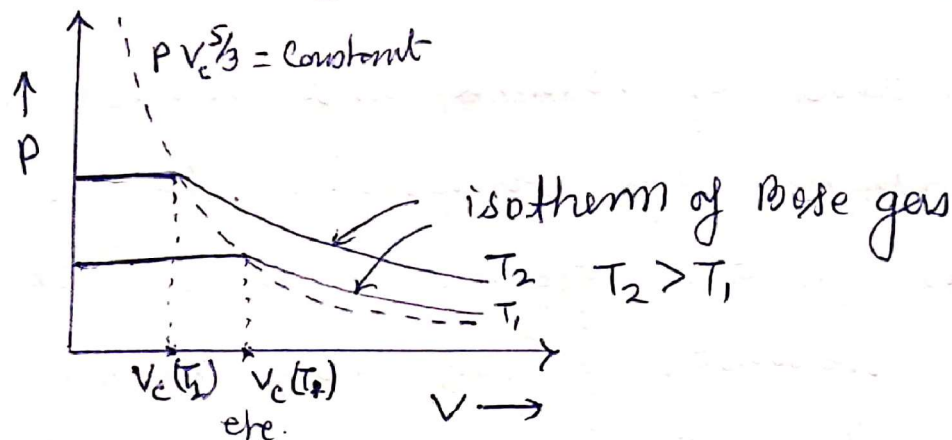 P V_c^{5/3} = Constant
↑
P
isotherm of Bose gas
T₂ T₂ > T₁
T₁
V_c(T₂) V_c(T₁)
V →
etc.